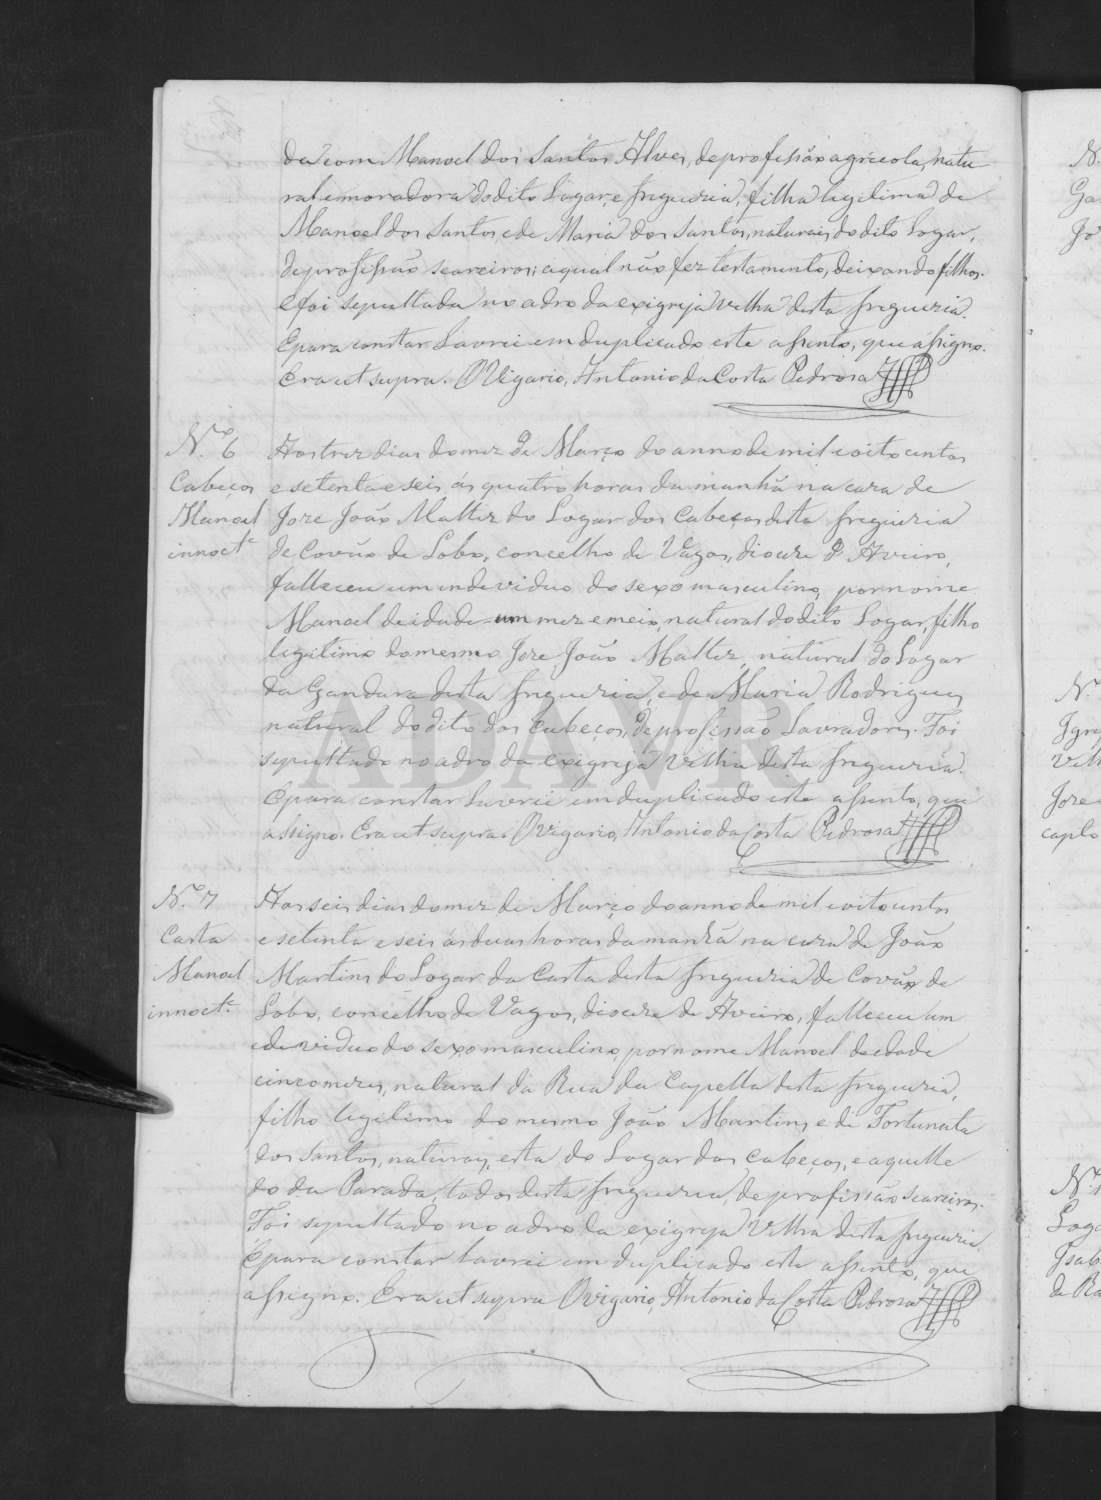 da com Manoel dos Santos Alves, de profissão agricola, natu
ral e moradora do dito Logar, e freguezia, filha legitima de
Manoel dos Santos e de Maria dos Santos, naturais do dito Logar,
de profissão seareiros; a qual não fez testamento, deixando filhos.
E foi sepultada no adro da exigreja velha desta freguezia.
E para constar lavrei em duplicado este assento, que assigno.
Era ut supra. O Vigario, Antonio da Costa Pedrosa
N.º 6
Cabeços
Manoel
innoct.e
Aos trez dias do mez de Março do anno de mil e oitocentos
e setenta e seis ás quatro horas da manhã na caza de
Joze João Malter do Logar dos Cabeços desta freguezia
de Covão de Lobo, concelho de Vagos, diocese d'Aveiro,
falleceu um individuo do sexo masculino, por nome
Manoel de idade um mez e meio, natural do dito Logar, filho
legitimo do mesmo Joze João Malter, natural do Logar
da Gandara desta freguezia, e de Maria Rodrigues
natural do dito dos Cabeços, de profissão Lavradores. Foi
sepultado no adro da exigreja velha desta freguezia.
E para constar lavrei em duplicado este assento, que
assigno. Era ut supra. O Vigario, Antonio da Costa Pedrosa
N.º 7
Carta
Manoel
innoct.e
Aos seis dias do mez de Março do anno de mil e oitocentos
e setenta e seis ás duas horas da manhã na caza de João
Martins do Logar da Carta desta freguezia de Covão de
Lobo, concelho de Vagos, diocese de Aveiro, falleceu um
individuo do sexo masculino, por nome Manoel de edade
cinco mezes, natural da Rua da Capella desta freguezia,
filho legitimo do mesmo João Martins e de Fortunata
dos Santos, naturais, esta do Logar dos Cabeços, e aquelle
do da Parada, todos desta freguezia, de profissão seareiros.
Foi sepultado no adro da exigreja velha desta freguezia.
E para constar lavrei em duplicado este assento, que
assigno. Era ut supra O Vigario, Antonio da Costa Pedrosa
ADAVR